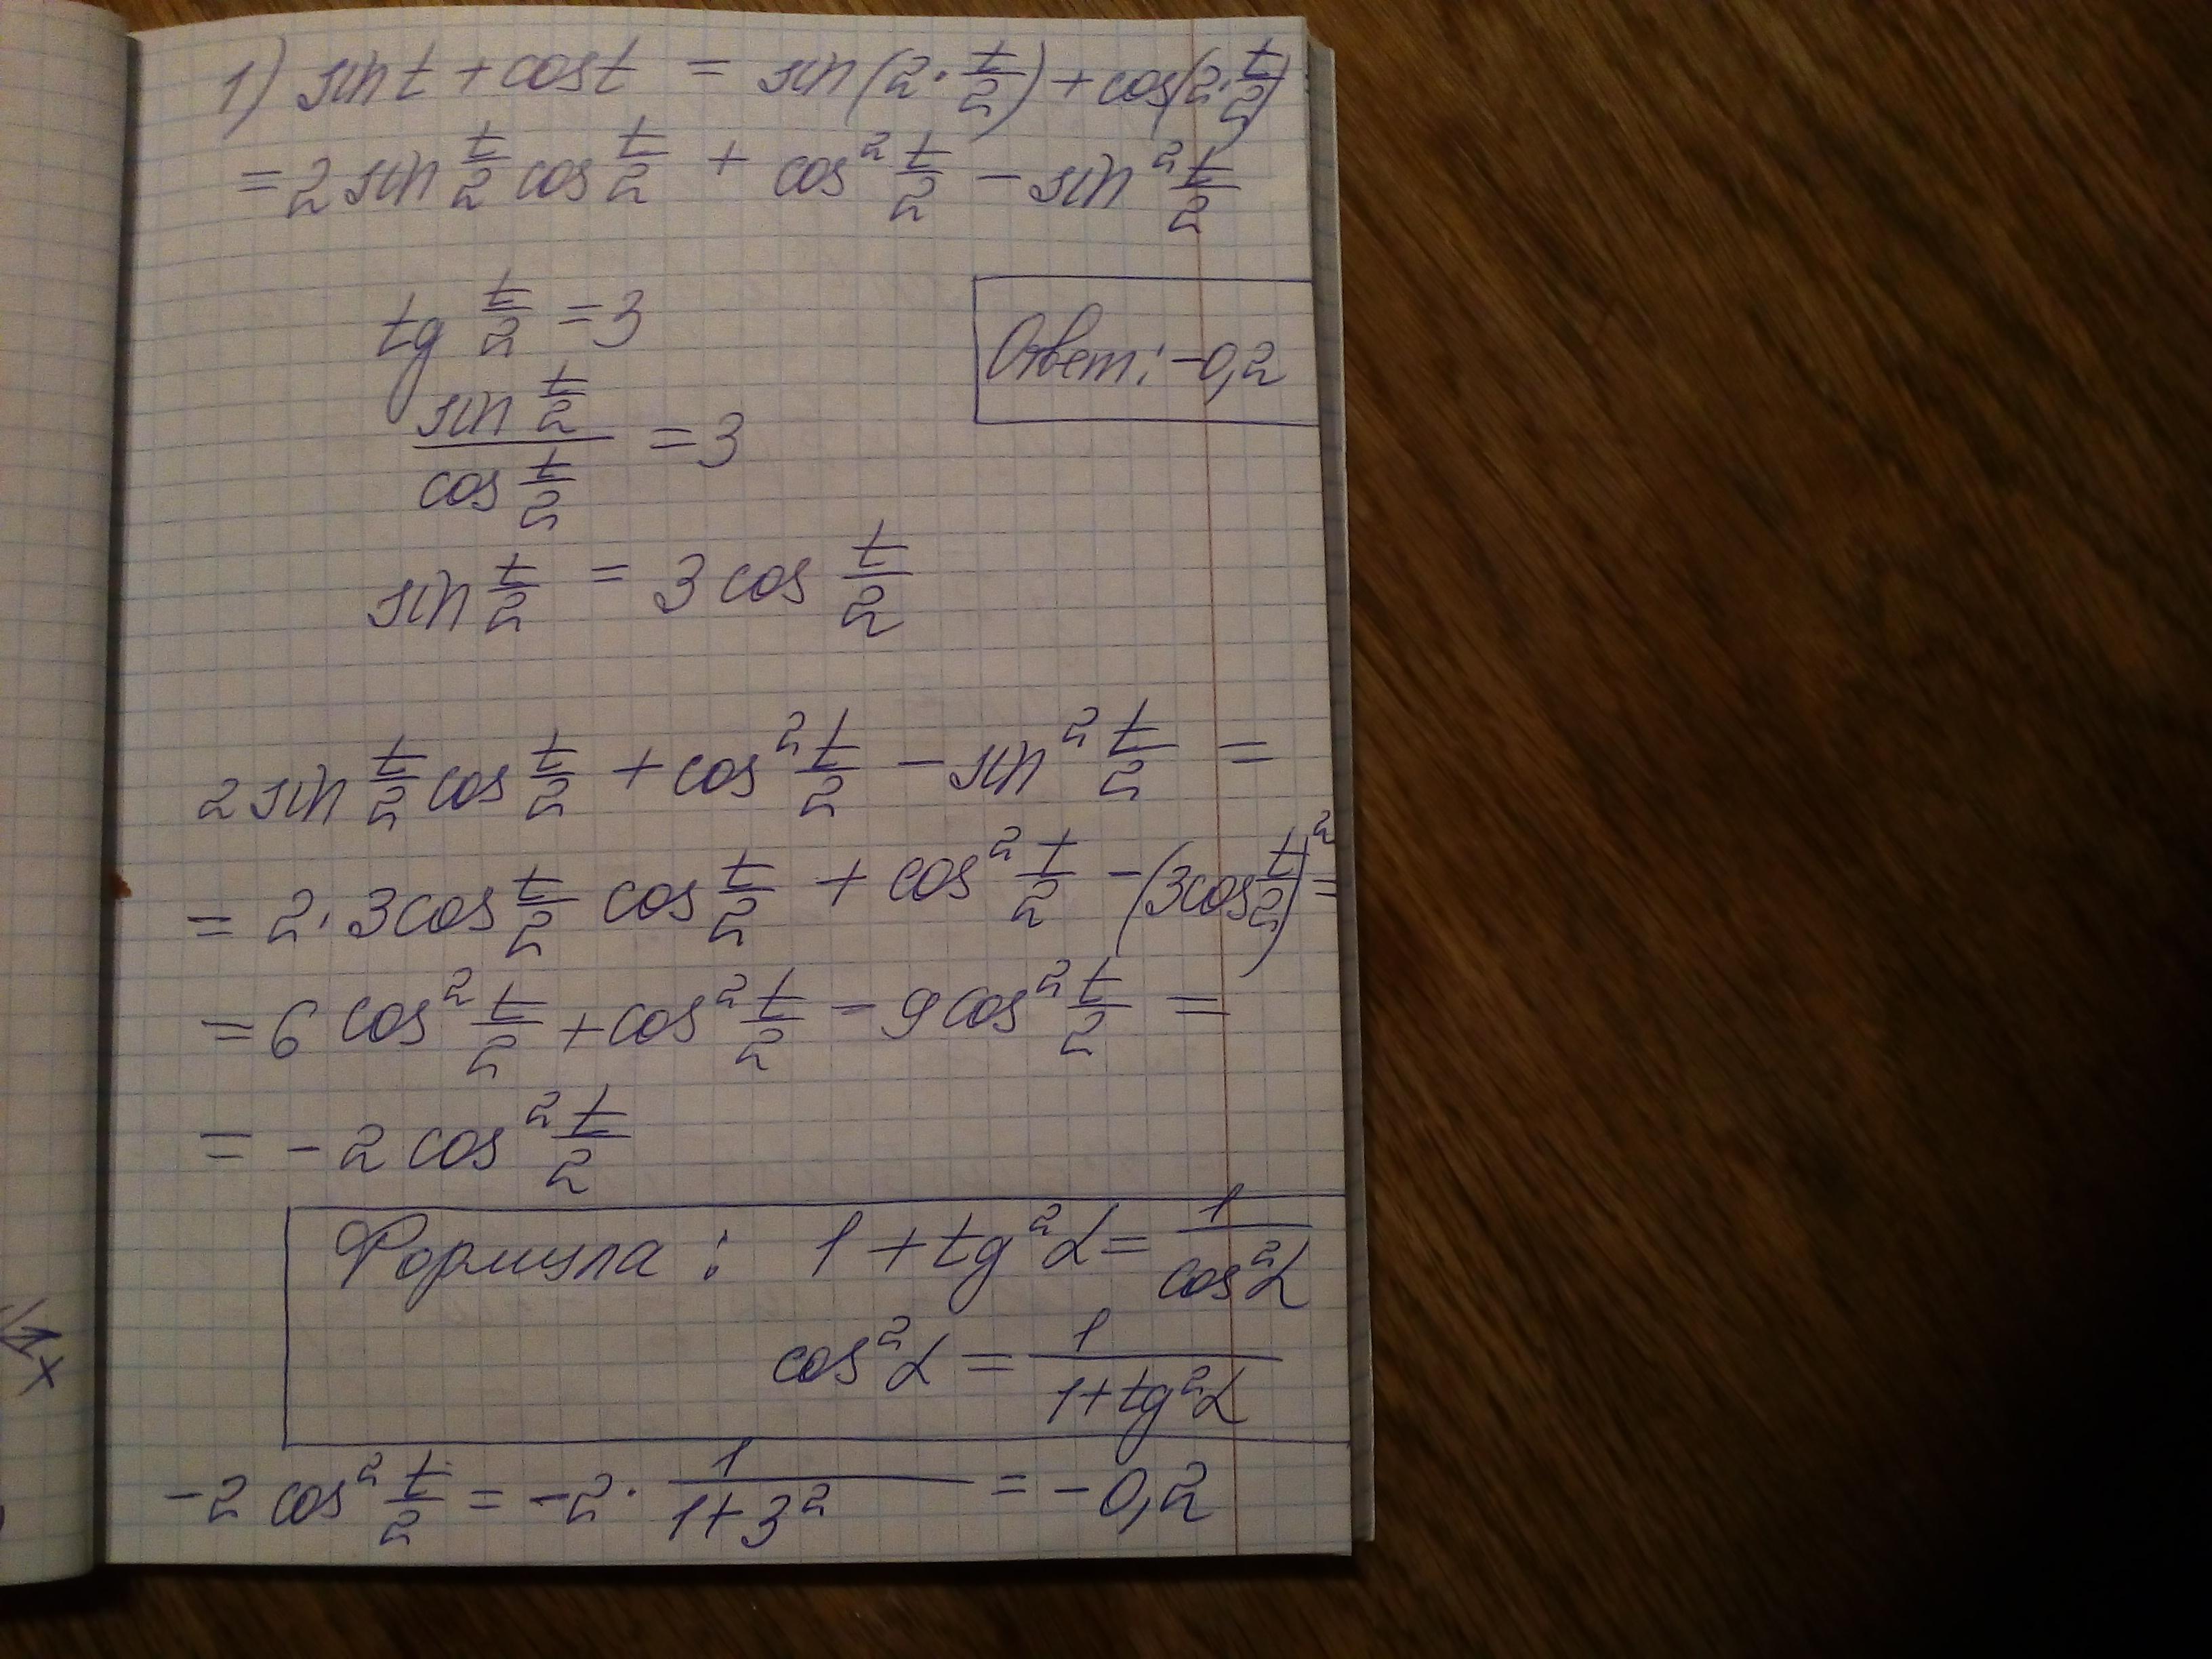 1) sin t + cos t = sin(2·t/2) + cos(2·t/2)
= 2 sin t/2 cos t/2 + cos² t/2 − sin² t/2
tg t/2 = 3
Ответ: −0,2
sin t/2 / cos t/2 = 3
sin t/2 = 3 cos t/2
2 sin t/2 cos t/2 + cos² t/2 − sin² t/2 =
= 2·3cos t/2 cos t/2 + cos² t/2 − (3cos t/2)² =
= 6 cos² t/2 + cos² t/2 − 9cos² t/2 =
= −2 cos² t/2
Формула: 1 + tg²α = 1/cos²α
cos²α = 1/(1+tg²α)
−2 cos² t/2 = −2 · 1/(1+3²) = −0,2
x